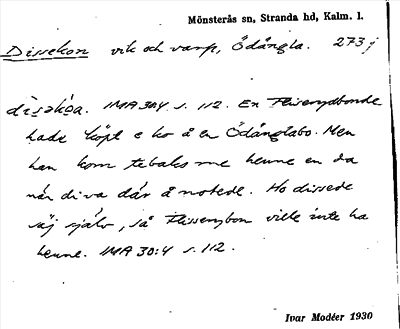 Mönsterås sn, Stranda hd, Kalm. l.
Dissekon vik och varp, Ödängla. 273 j
disəkóa. IMA 30:4 s. 112. En Fliserydbonde
hade köpt e ko å en Ödänglabo. Men
han kom tebaks me henne en da
når di va där å notede. Ho dissede
säj själv, så Fliserybon ville inte ha
henne. IMA 30:4 s. 112.
Ivar Modéer 1930